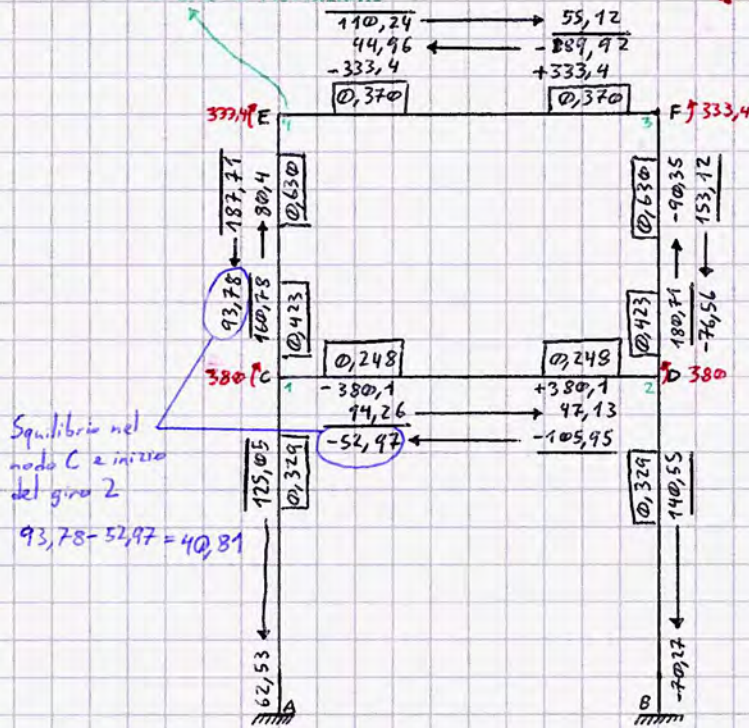 110,24 55,12
44,96 -189,92
-333,4 +333,4
0,370 0,370
333,4 E 4 3 F 333,4
187,71 80,4 0,630
0,630 -90,35 153,12
93,78 160,78 0,423
0,423 180,71 -76,56
0,248 0,248
380 C 1 2 D 380
-380,1 +380,1
94,26 47,13
-52,97 -105,95
Squilibrio nel
nodo C e inizio
del giro 2
93,78-52,97=40,81
125,05 0,329
0,329 140,55
62,53 -70,27
A B